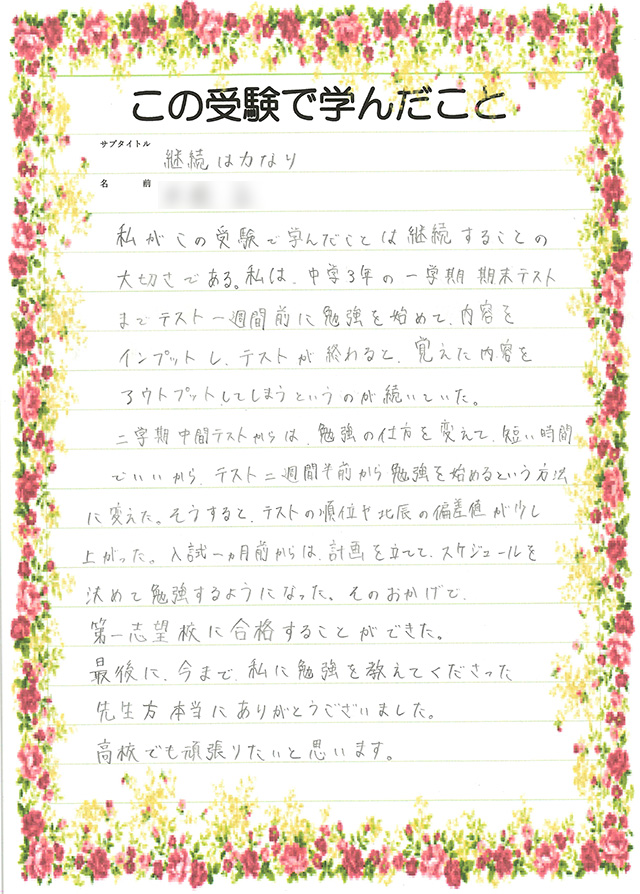 この受験で学んだこと
サブタイトル
継続は力なり
名 前
私がこの受験で学んだことは継続することの
大切さである。私は、中学3年の一学期 期末テスト
までテスト一週間前に勉強を始めて、内容を
インプットし、テストが終わると、覚えた内容を
アウトプットしてしまうというのが続いていた。
二学期中間テストからは、勉強の仕方を変えて、短い時間
でいいから、テスト二週間半前から勉強を始めるという方法
に変えた。そうすると、テストの順位や北辰の偏差値が少し
上がった。入試一ヵ月前からは、計画を立てて、スケジュールを
決めて勉強するようになった。そのおかげで、
第一志望校に合格することができた。
最後に、今まで、私に勉強を教えてくださった
先生方本当にありがとうございました。
高校でも頑張りたいと思います。